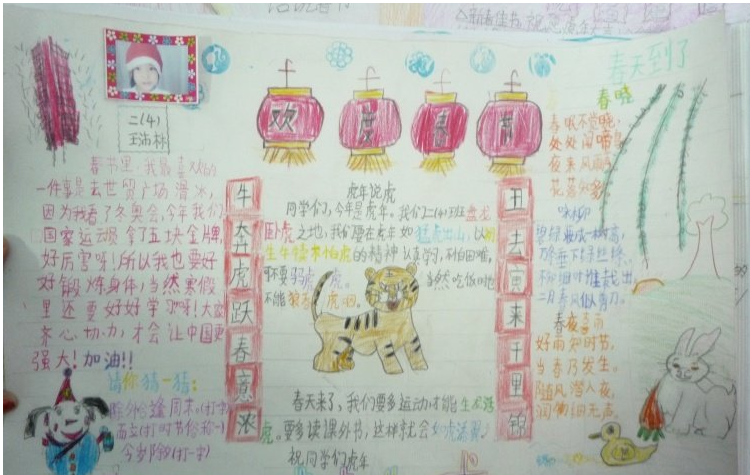 欢度春节
春天到了
二(4)
春节里,我最喜欢的
一件事是去世贸广场滑冰,
因为我看了冬奥会,今年我们
国家运动员拿了五块金牌,
好厉害呀!所以我也要好
好锻炼身体,当然寒假
里还要好好学习呀!大家
齐心协力,才会让中国更
强大!加油!!
请你猜一猜:
除外合逢周末(打一字)
牛奔虎跃春寅浓
虎年说虎
同学们,今年是虎年,我们二(4)班
卧虎之地,我们要在虎年如猛虎出山,以
生牛犊不怕虎的精神认真学习,不怕困难,
不能狼吞虎咽。
春天来了,我们要多运动才能生龙活
虎。要多读课外书,这样就会如虎添翼!
祝同学们虎年
丑去寅来千里锦
春晓
春眠不觉晓,
处处闻啼鸟。
夜来风雨声,
花落知多少
咏柳
碧绿妆成一树高,
万条垂下绿丝绦。
不知细叶谁裁出,
二月春风似剪刀。
春夜喜雨
好雨知时节,
当春乃发生。
随风潜入夜,
润物细无声。